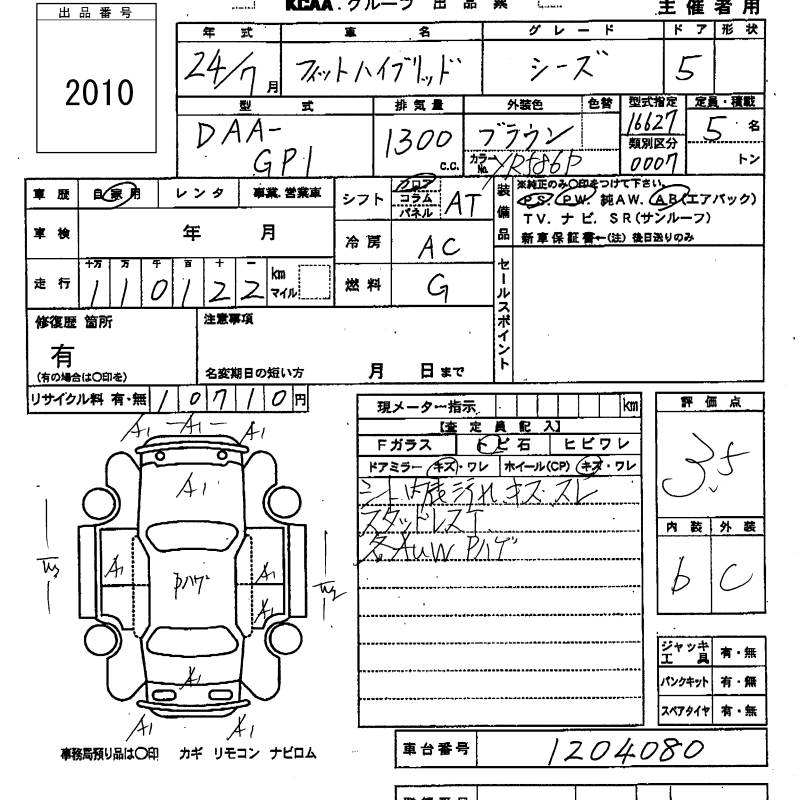 出品番号
2010
KCAA.グループ 出品票
主催者用
年式 車名 グレード ドア 形状
24/7月 フィットハイブリッド シーズ 5
型式 排気量 外装色 色替 型式指定 定員・積載
DAA-GP1 1300 c.c. ブラウン 16627 5名
カラーNo. YR586P 類別区分 0007 トン
車歴 自家用 レンタ 事業.営業車
シフト フロア コラム パネル AT
装備品
※純正のみ〇印をつけて下さい。
PS. PW. 純AW. AB(エアバック)
TV. ナビ. SR(サンルーフ)
新車保証書←(注) 後日送りのみ
車検 年 月
冷房 AC
走行 十万 万 千 百 十 一
110122 km マイル
燃料 G
セールスポイント
修復歴 箇所
有
(有の場合は〇印を)
注意事項
名変期日の短い方 月 日まで
リサイクル料 有・無 10710円
現メーター指示 km
【査定員記入】
Fガラス トビ石 ヒビワレ
ドアミラー キズ・ワレ ホイール(CP) キズ・ワレ
シート 内張 汚れ キズ・スレ
スタッドレスT
各AUW Pハゲ
評価点
3.5
内装 外装
b C
A1 A1 A1
A1
A1 Pハゲ A1
A1
A1
A1 A1
ジャッキ工具 有・無
パンクキット 有・無
スペアタイヤ 有・無
事務局預り品は〇印 カギ リモコン ナビロム
車台番号 1204080